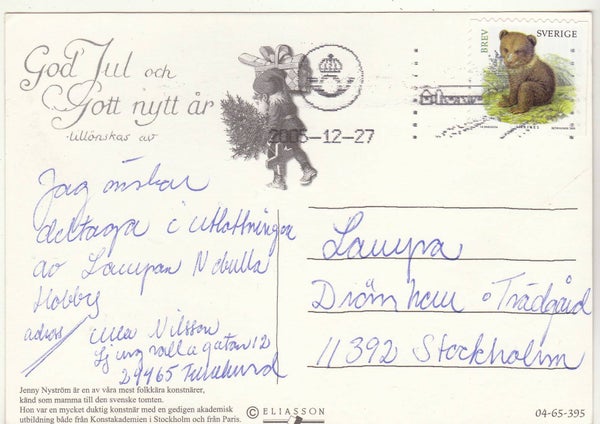 God Jul och
Gott nytt år
tillönskas av
2005-12-27
BREV
SVERIGE
Jag önskar
deltaga i utlottningen
av Lampan Nebulla
Hobby
adress/ Ulla Nilsson
12
29465
Lampa
Drömhem o Trädgård
11392 Stockholm
Jenny Nyström är en av våra mest folkkära konstnärer,
känd som mamma till den svenske tomten.
Hon var en mycket duktig konstnär med en gedigen akademisk
utbildning både från Konstakademien i Stockholm och från Paris.
© ELIASSON
04-65-395